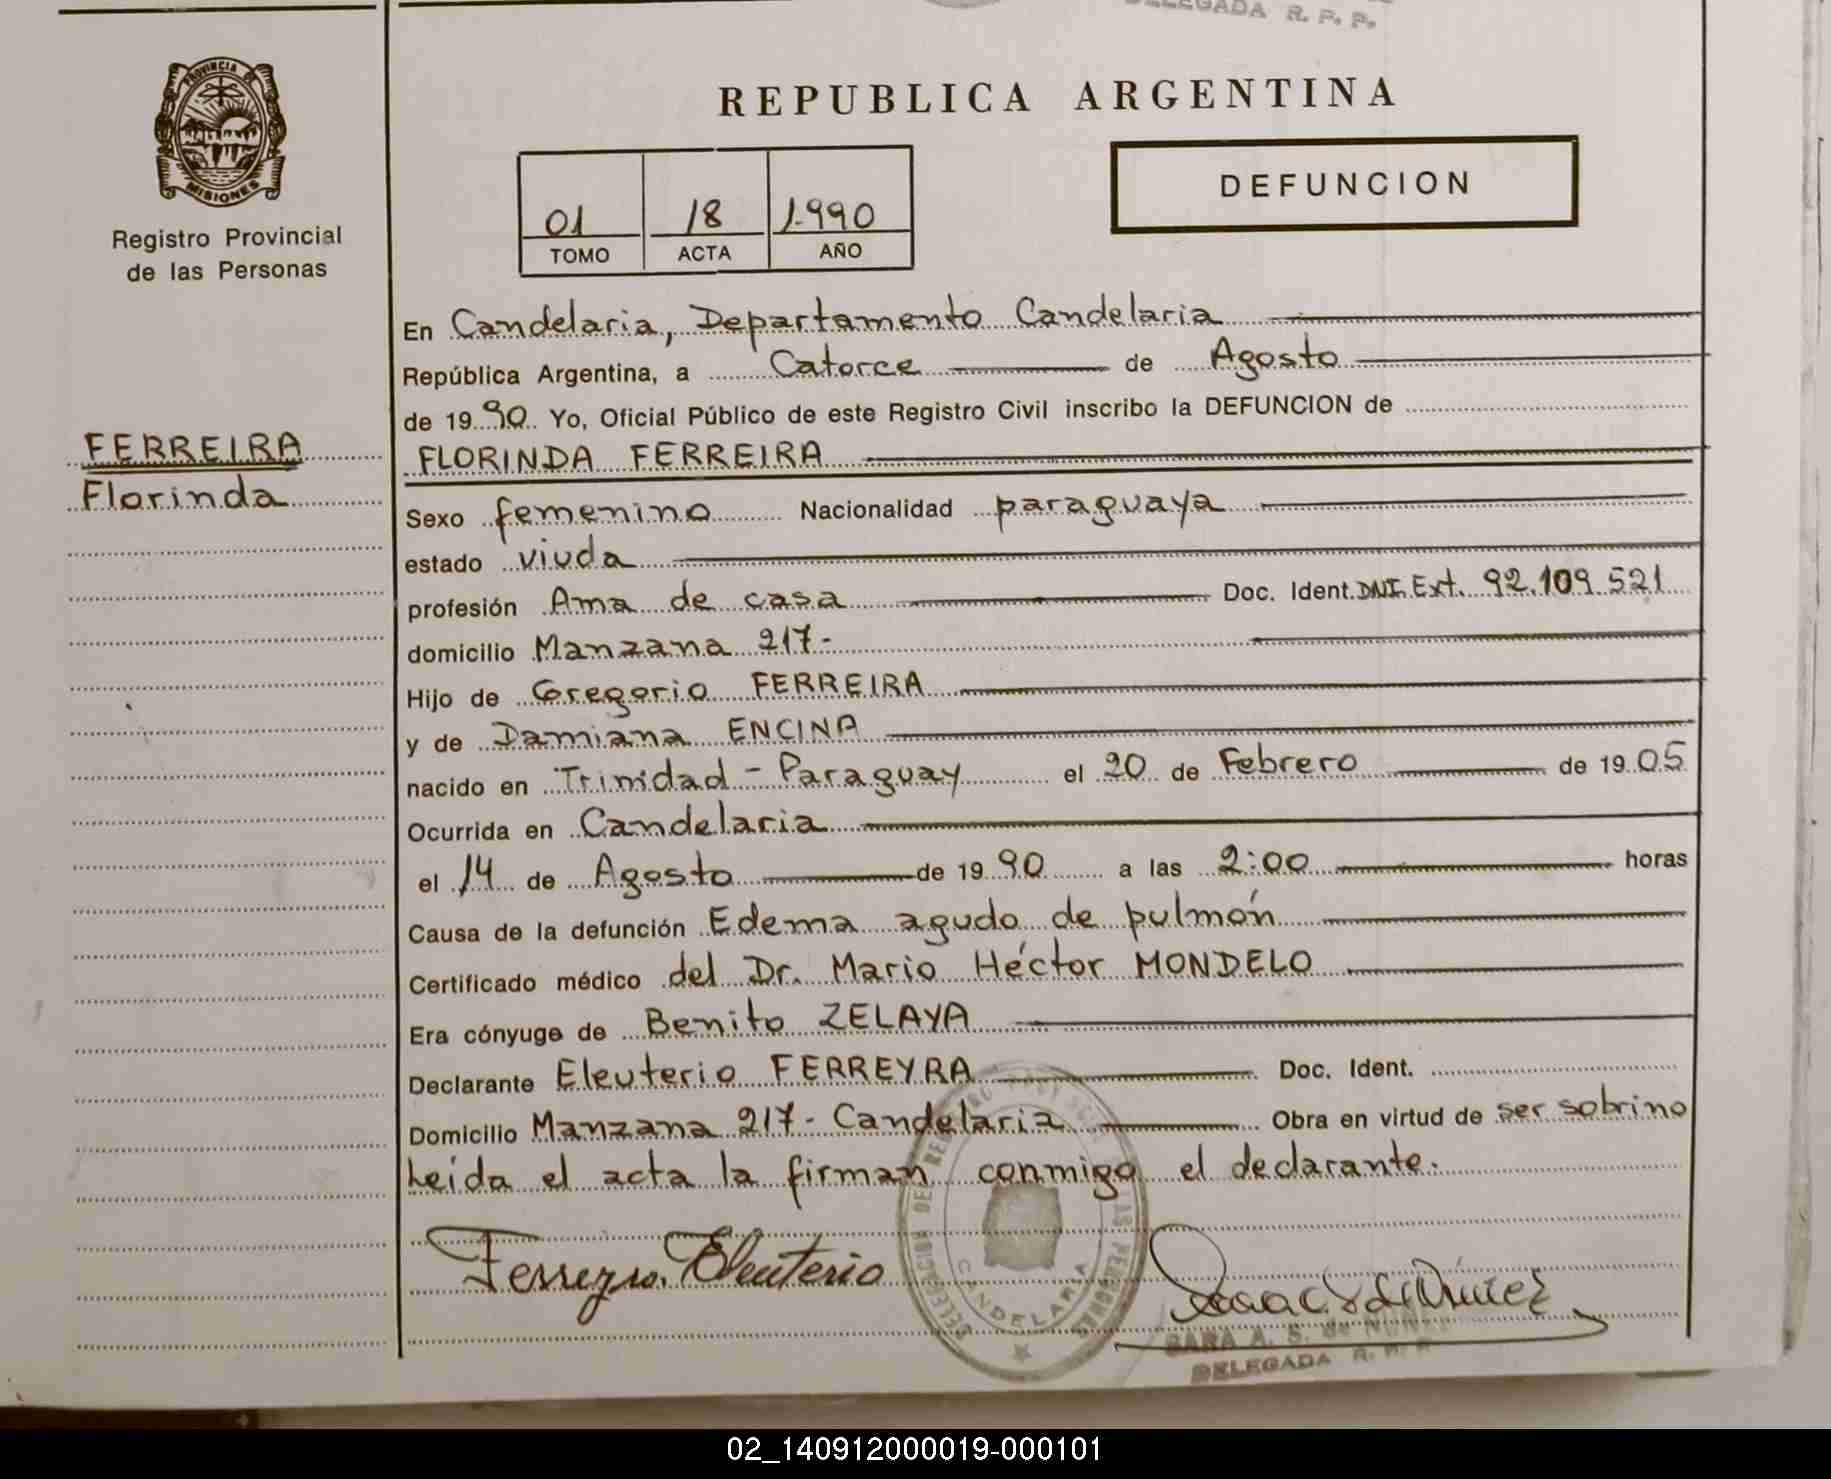 DELEGADA R. P. P.
PROVINCIA DE
MISIONES
Registro Provincial
de las Personas
REPUBLICA ARGENTINA
01 18 1.990
TOMO ACTA AÑO
DEFUNCION
FERREIRA
Florinda
En Candelaria, Departamento Candelaria
República Argentina, a Catorce de Agosto
de 1990 Yo, Oficial Público de este Registro Civil inscribo la DEFUNCION de
FLORINDA FERREIRA
Sexo femenino Nacionalidad paraguaya
estado viuda
profesión Ama de casa Doc. Ident. DNI. Ext. 92.109.521
domicilio Manzana 217-
Hijo de Gregorio FERREIRA
y de Damiana ENCINA
nacido en Trinidad - Paraguay el 20 de Febrero de 1905
Ocurrida en Candelaria
el 14 de Agosto de 1990 a las 2:00 horas
Causa de la defunción Edema agudo de pulmón
Certificado médico del Dr. Mario Héctor MONDELO
Era cónyuge de Benito ZELAYA
Declarante Eleuterio FERREYRA Doc. Ident.
Domicilio Manzana 217- Candelaria Obra en virtud de ser sobrino
Leída el acta la firman conmigo el declarante.
Ferreyra Eleuterio
CANDELARIA
SARA A. S. de
DELEGADA R. P. P.
02_140912000019-000101